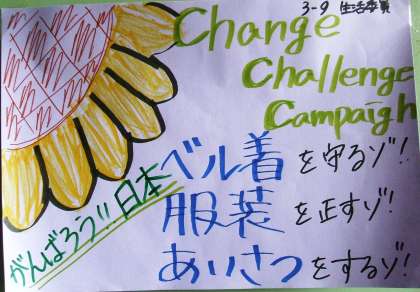 3-9 生活委員
Change
Challenge
Campaigh
ベル着を守るゾ!
服装を正すゾ!
あいさつをするゾ!
がんばろう!!日本